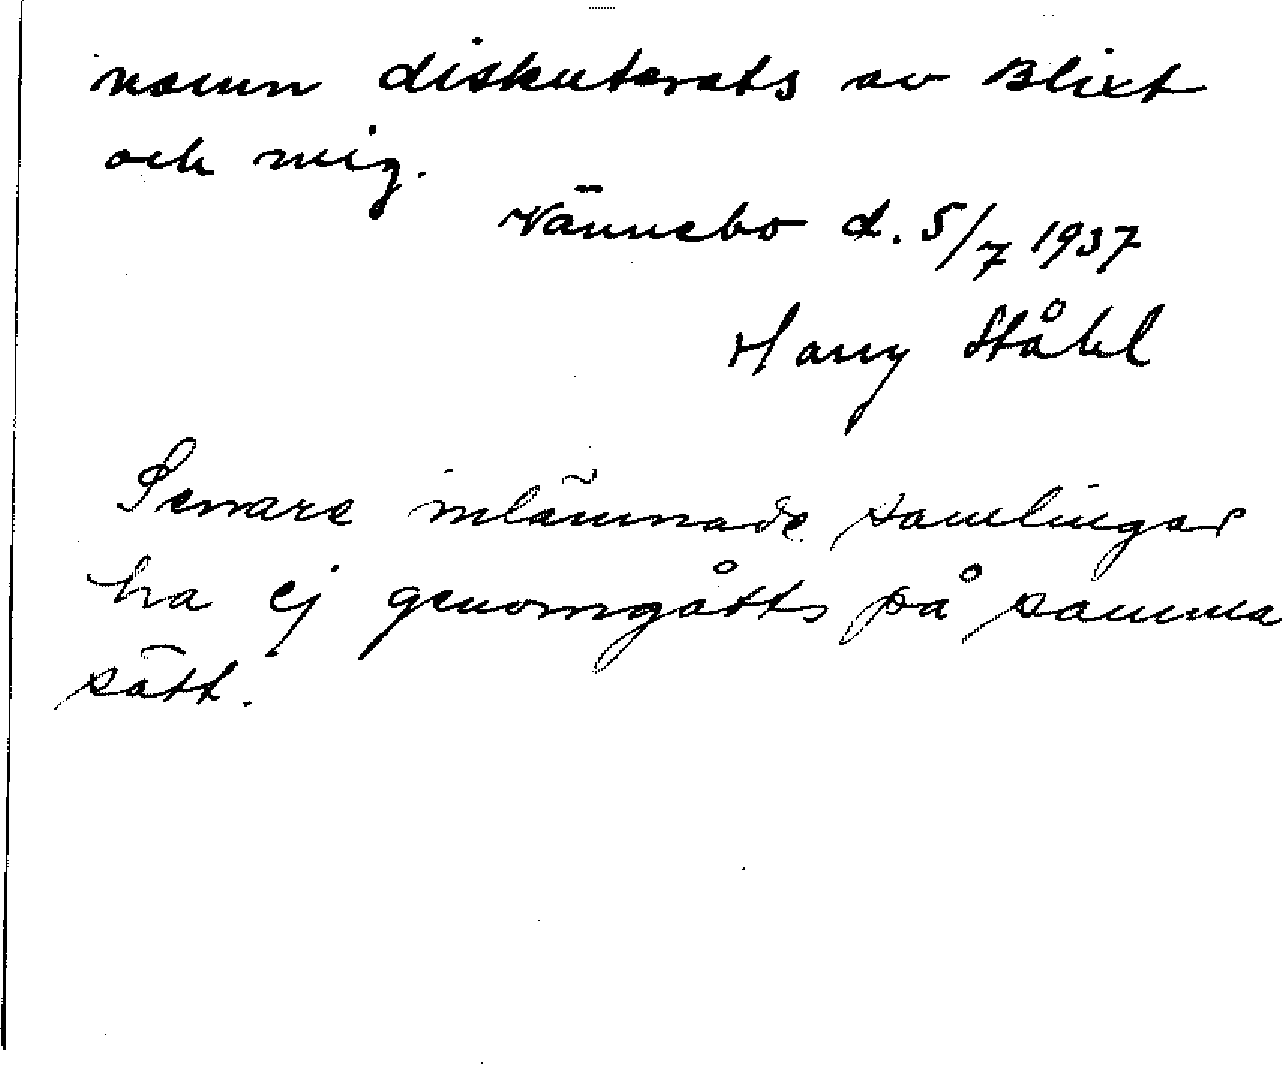 namn diskuterats av Blixt
och mig.
Vännebo d. 5/7 1937
Harry Ståhl
Senare inlämnade samlingar
ha ej genomgåtts på samma
sätt.